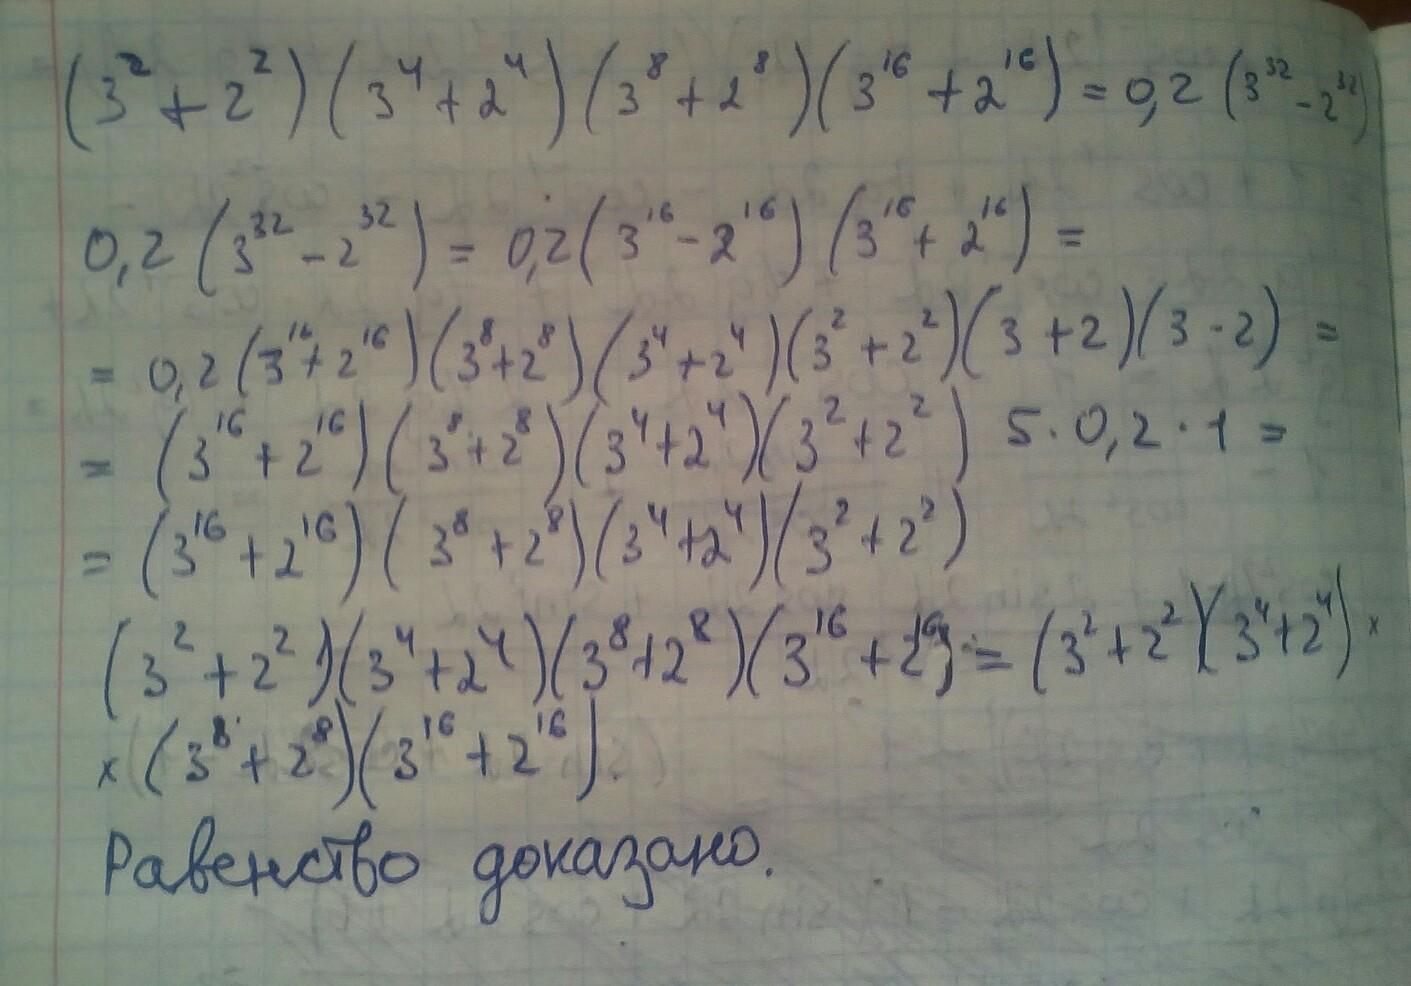 (3² + 2²)(3⁴ + 2⁴)(3⁸ + 2⁸)(3¹⁶ + 2¹⁶) = 0,2 (3³² - 2³²)
0,2 (3³² - 2³²) = 0,2 (3¹⁶ - 2¹⁶)(3¹⁶ + 2¹⁶) =
= 0,2 (3¹⁶ + 2¹⁶)(3⁸ + 2⁸)(3⁴ + 2⁴)(3² + 2²)(3 + 2)(3 - 2) =
= (3¹⁶ + 2¹⁶)(3⁸ + 2⁸)(3⁴ + 2⁴)(3² + 2²) 5 · 0,2 · 1 =
= (3¹⁶ + 2¹⁶)(3⁸ + 2⁸)(3⁴ + 2⁴)(3² + 2²)
(3² + 2²)(3⁴ + 2⁴)(3⁸ + 2⁸)(3¹⁶ + 2¹⁶) = (3² + 2²)(3⁴ + 2⁴) ×
× (3⁸ + 2⁸)(3¹⁶ + 2¹⁶).
Равенство доказано.